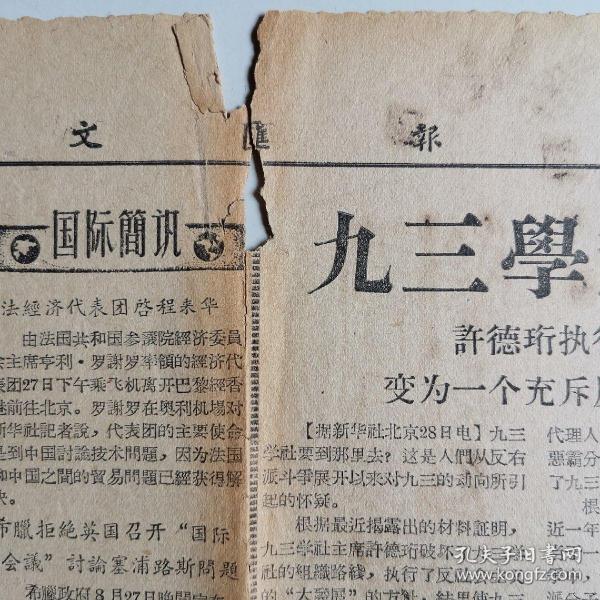 文匯報
国际簡訊
法經济代表团啓程来华
由法国共和国参議院經济委員
主席亨利·罗謝罗率領的經济代
表团27日下午乘飞机离开巴黎經香
港前往北京。罗謝罗在奥利机場对
新华社記者說，代表团的主要使命
是到中国討論技术問題，因为法国
和中国之間的貿易問題已經获得解
决。
希臘拒絶英国召开“国际
会議”討論塞浦路斯問題
希臘政府8月27日晚間宣布
九三學
許德珩执行
变为一个充斥
【据新华社北京28日电】九三
学社要到那里去？这是人們从反右
派斗爭展开以来对九三的动向所引
起的怀疑。
根据最近揭露出的材料証明，
九三学社主席許德珩破坏
社的組織路綫，执行了反
的“大發展”的方針，結果使九三
代理人
惡霸分
了九三
根
近一年
分
派分子
孔夫子旧书网
kongfz.com